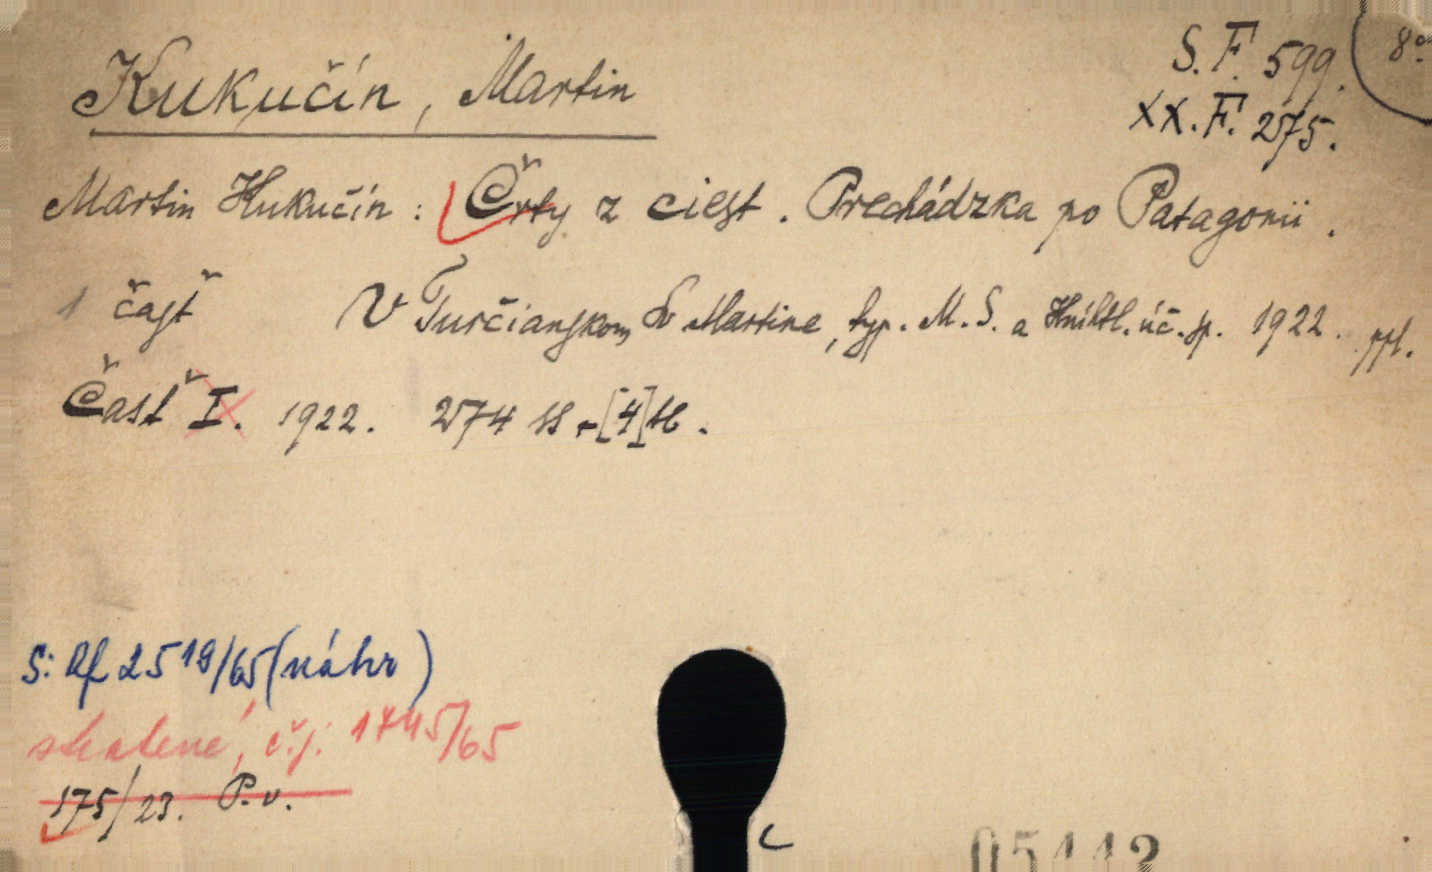 Kukučín, Martin
S. F. 599.
8°
XX. F. 275.
Martin Kukučín: Črty z ciest. Prechádzka po Patagonii.
1 časť V Turčianskom Sv Martine, typ. M. S. a Kníhtl. úč. sp. 1922. ppl.
Časť I. 1922. 274 ss + [4] ss.
S: Rf 2519/65 (náhr)
stratené, č.j. 1745/65
175/23. P. v.
05442